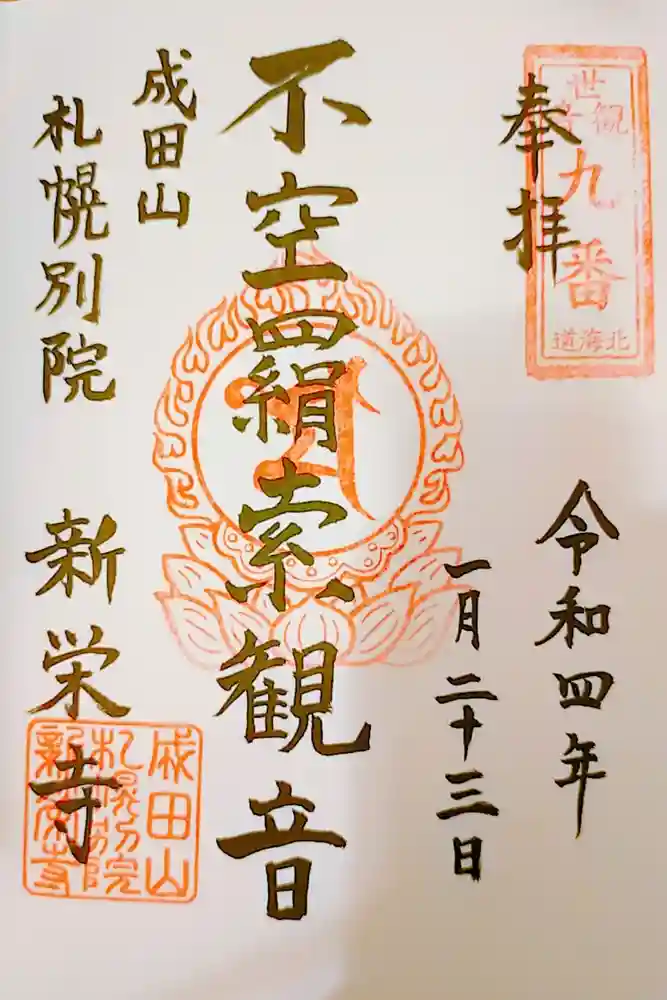 奉拝
九番
北海道
令和四年
一月二十三日
不空羂索観音
成田山
札幌別院
新栄寺
成田山
札幌別院
新栄寺